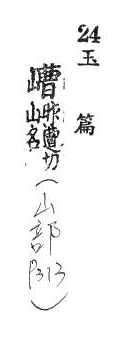 24
玉篇
嶆昨遭切山名(山部P313)